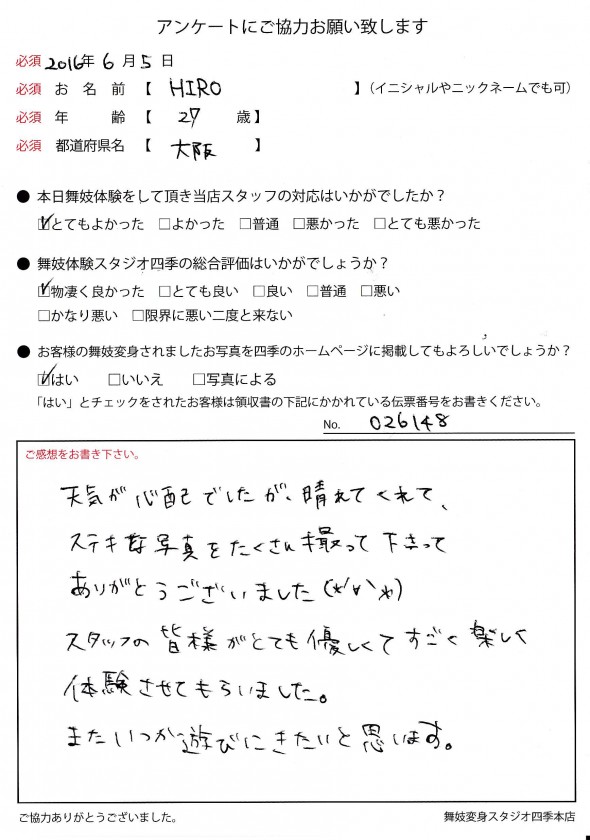 アンケートにご協力お願い致します
必須 2016年 6 月 5 日
必須 お 名 前 【 HIRO 】（イニシャルやニックネームでも可）
必須 年 齢 【 27 歳】
必須 都道府県名 【 大阪 】
● 本日舞妓体験をして頂き当店スタッフの対応はいかがでしたか？
☑とてもよかった □よかった □普通 □悪かった □とても悪かった
● 舞妓体験スタジオ四季の総合評価はいかがでしょうか？
☑物凄く良かった □とても良い □良い □普通 □悪い
□かなり悪い □限界に悪い二度と来ない
● お客様の舞妓変身されましたお写真を四季のホームページに掲載してもよろしいでしょうか？
☑はい □いいえ □写真による
「はい」とチェックをされたお客様は領収書の下記にかかれている伝票番号をお書きください。
No. 026148
ご感想をお書き下さい。
天気が心配でしたが、晴れてくれて、
ステキな写真をたくさん撮って下さって
ありがとうございました(*'∀'*)
スタッフの皆様がとても優しくてすごく楽しく
体験させてもらいました。
またいつか遊びにきたいと思います。
ご協力ありがとうございました。
舞妓変身スタジオ四季本店